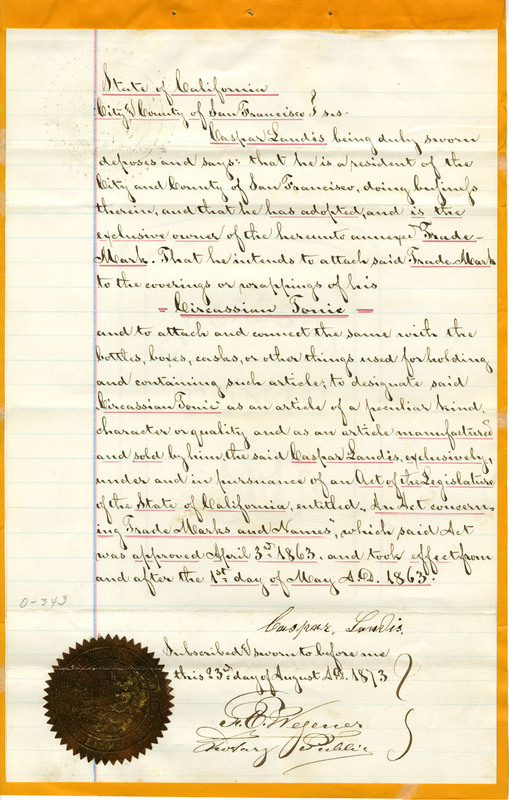 State of California
City & County of San Francisco } s.s.
Caspar Landis being duly sworn
deposes and says: that he is a resident of the
City and County of San Francisco, doing business
therein, and that he has adopted, and is the
exclusive owner of the hereunto annexed "Trade-
Mark. That he intends to attach said Trade Mark
to the coverings or wrappings of his
- Circassian Tonic -
and to attach and connect the same with the
bottles, boxes, casks, or other things used for holding
and containing such article; to designate said
"Circassian Tonic" as an article of a peculiar kind,
character or quality and as an article manufactured
and sold by him, the said Caspar Landis, exclusively,
under and in pursuance of an Act of the Legislature
of the State of California, entitled "An Act concern-
ing Trade Marks and Names", which said Act
was approved April 3rd 1863. and took effect from
and after the 1st day of May A.D. 1863.
Caspar Landis.
O-343
Subscribed & sworn to before me
this 23rd day of August A.D. 1873
F. O. Wegener
Notary Public